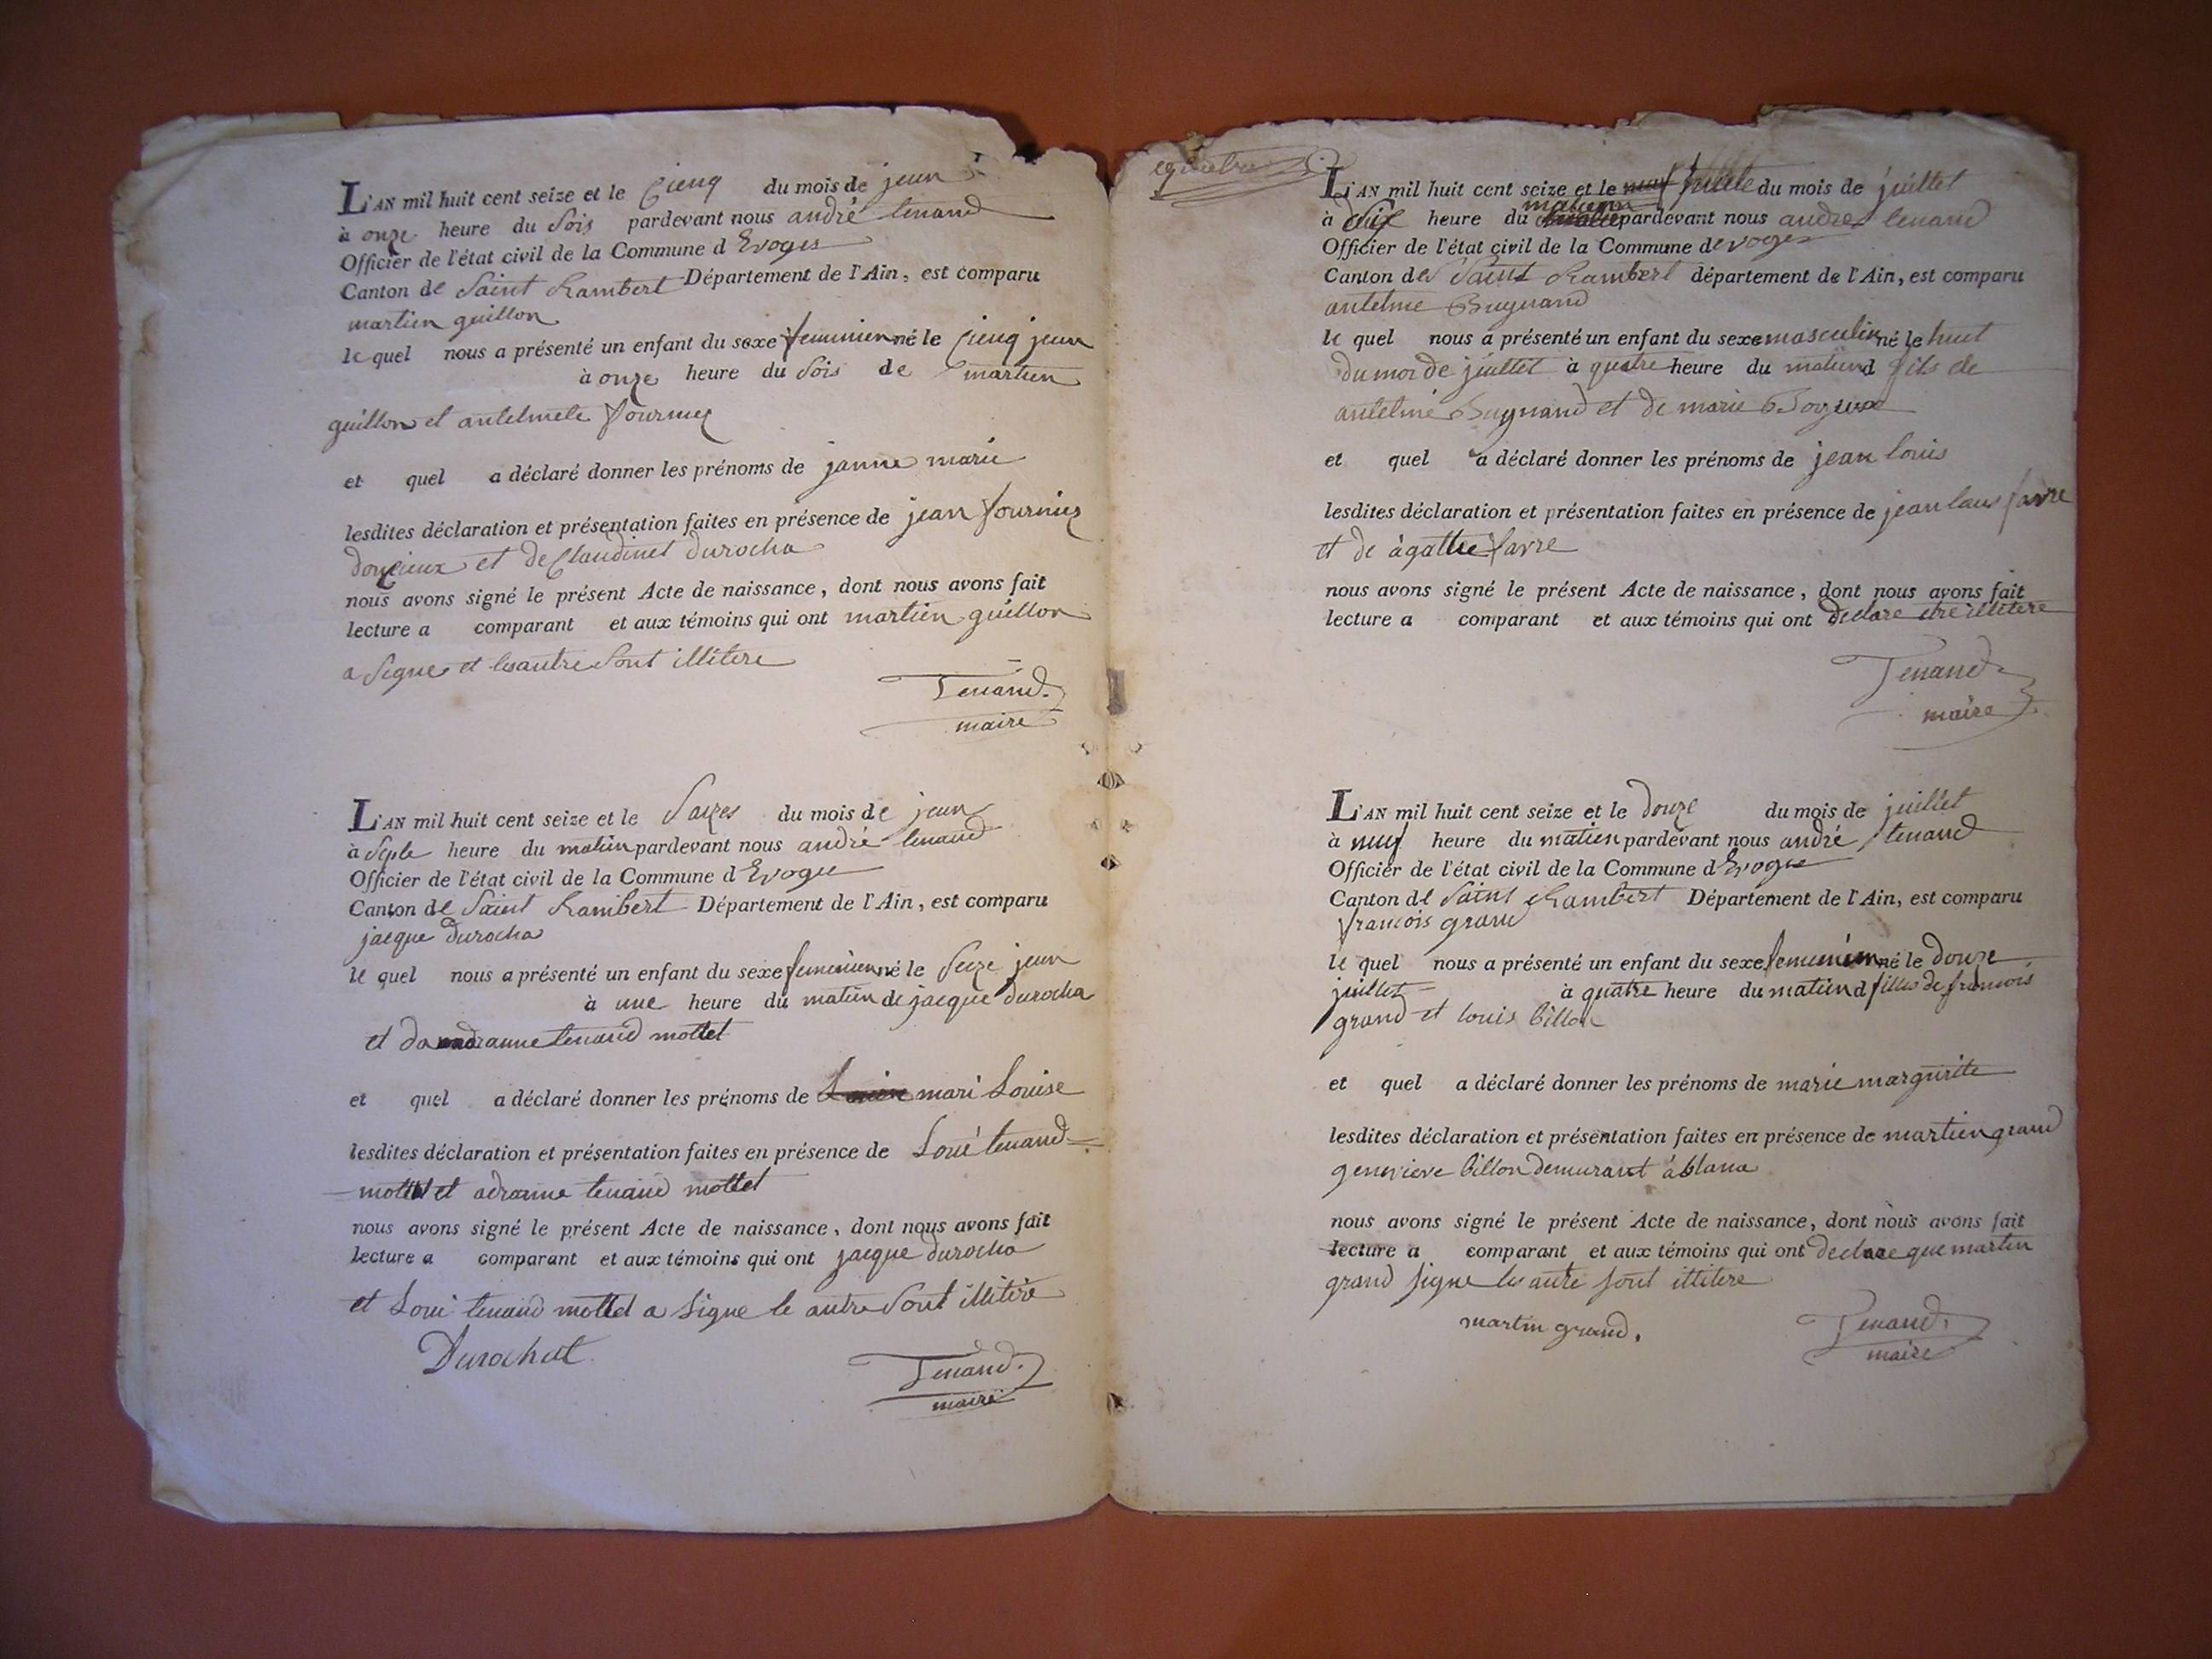 L'AN mil huit cent seize et le cienq du mois de jeun
à onze heure du Sois pardevant nous andré tenand
Officier de l'état civil de la Commune d Evoges
Canton de Saint Rambert Département de l'Ain, est comparu
martien guillon
le quel nous a présenté un enfant du sexe femminien né le cienq jeun
à onze heure du Sois de martien
guillon et antelmete fournier
et quel a déclaré donner les prénoms de janne marie
lesdites déclaration et présentation faites en présence de jean fournier
doncieux et de Claudinet durocha
nous avons signé le présent Acte de naissance, dont nous avons fait
lecture a comparant et aux témoins qui ont martien guillon
a Signe et les autre Sont illitere
Tenand.
maire
L'AN mil huit cent seize et le Saizes du mois de jeun
à Septe heure du matien pardevant nous andré tenand
Officier de l'état civil de la Commune d Evoges
Canton de Saint Rambert Département de l'Ain, est comparu
jacque durocha
le quel nous a présenté un enfant du sexe feminien né le Seize jeun
à une heure du matien de jacque durocha
et d anne tenand mottet
et quel a déclaré donner les prénoms de mari Louise
lesdites déclaration et présentation faites en présence de Loui tenand
mottet et adrianne tenand mottet
nous avons signé le présent Acte de naissance, dont nous avons fait
lecture a comparant et aux témoins qui ont jacque durocha
et Loui tenand mottet a Signe le autre Sont illitere
Durochat
Tenand.
maire
L'AN mil huit cent seize et le du mois de juillet
à dix heure du matienn pardevant nous andre tenand
Officier de l'état civil de la Commune d evoges
Canton de Saint Rambert département de l'Ain, est comparu
antelme Bugnand
le quel nous a présenté un enfant du sexe masculin né le huit
du moi de juillet à quatre heure du matien d fils de
antelme Bugnand et de marie
et quel a déclaré donner les prénoms de jean louis
lesdites déclaration et présentation faites en présence de jean laus favre
et de àgatte favre
nous avons signé le présent Acte de naissance, dont nous avons fait
lecture a comparant et aux témoins qui ont declare etre illitere
Tenand
maire
L'AN mil huit cent seize et le douze du mois de juillet
à neuf heure du matien pardevant nous andré tenand
Officier de l'état civil de la Commune d Evoges
Canton de Saint Rambert Département de l'Ain, est comparu
francois grand
le quel nous a présenté un enfant du sexe femminien né le douze
juillet à quatre heure du matien d filles de francois
grand et louis billon
et quel a déclaré donner les prénoms de marie margurite
lesdites déclaration et présentation faites en présence de martien grand
genevieve billon demurant à blana
nous avons signé le présent Acte de naissance, dont nous avons fait
lecture a comparant et aux témoins qui ont declare que martin
grand signe les autre sont illitere
martin grand.
Tenand.
maire